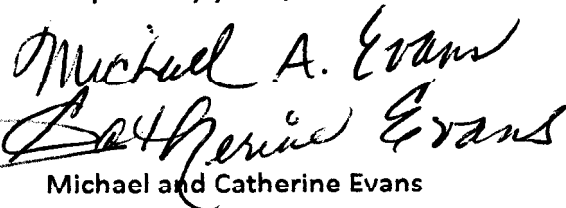 Michael A. Evans
Catherine Evans
Michael and Catherine Evans